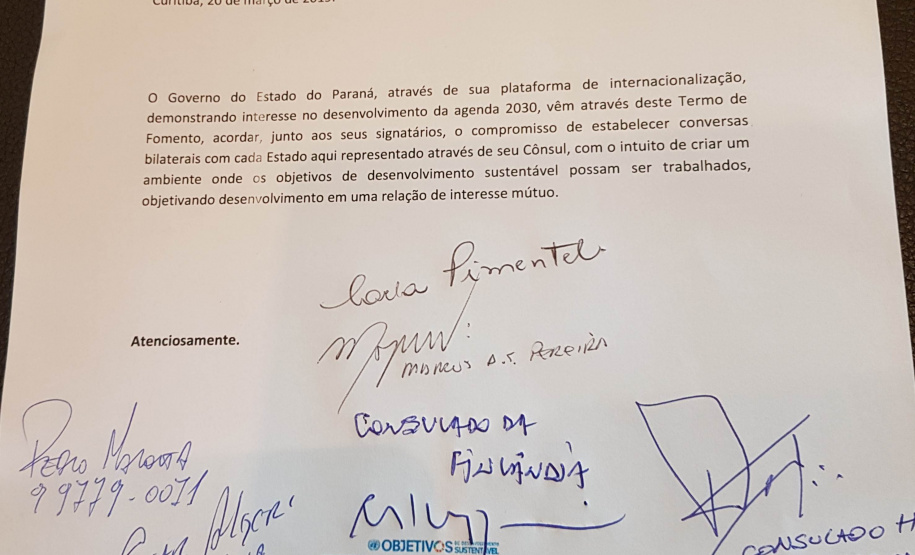 Curitiba, 20 de março de 2019.
O Governo do Estado do Paraná, através de sua plataforma de internacionalização,
demonstrando interesse no desenvolvimento da agenda 2030, vêm através deste Termo de
Fomento, acordar, junto aos seus signatários, o compromisso de estabelecer conversas
bilaterais com cada Estado aqui representado através de seu Cônsul, com o intuito de criar um
ambiente onde os objetivos de desenvolvimento sustentável possam ser trabalhados,
objetivando desenvolvimento em uma relação de interesse mútuo.
Pimentel
Atenciosamente.
MARCUS A.S. PEREIRA
CONSULADO DA
FINLÂNDIA
PEDRO
99779-0071
CONSULADO H
OBJETIVOS DE DESENVOLVIMENTO
SUSTENTÁVEL